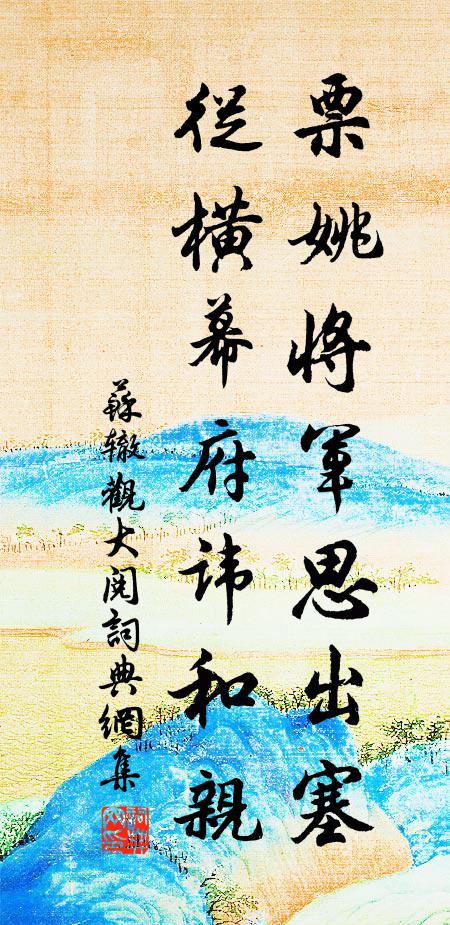 票姚將軍思出塞
從横幕府讳和親
蘇辙觀大阅詞典網集